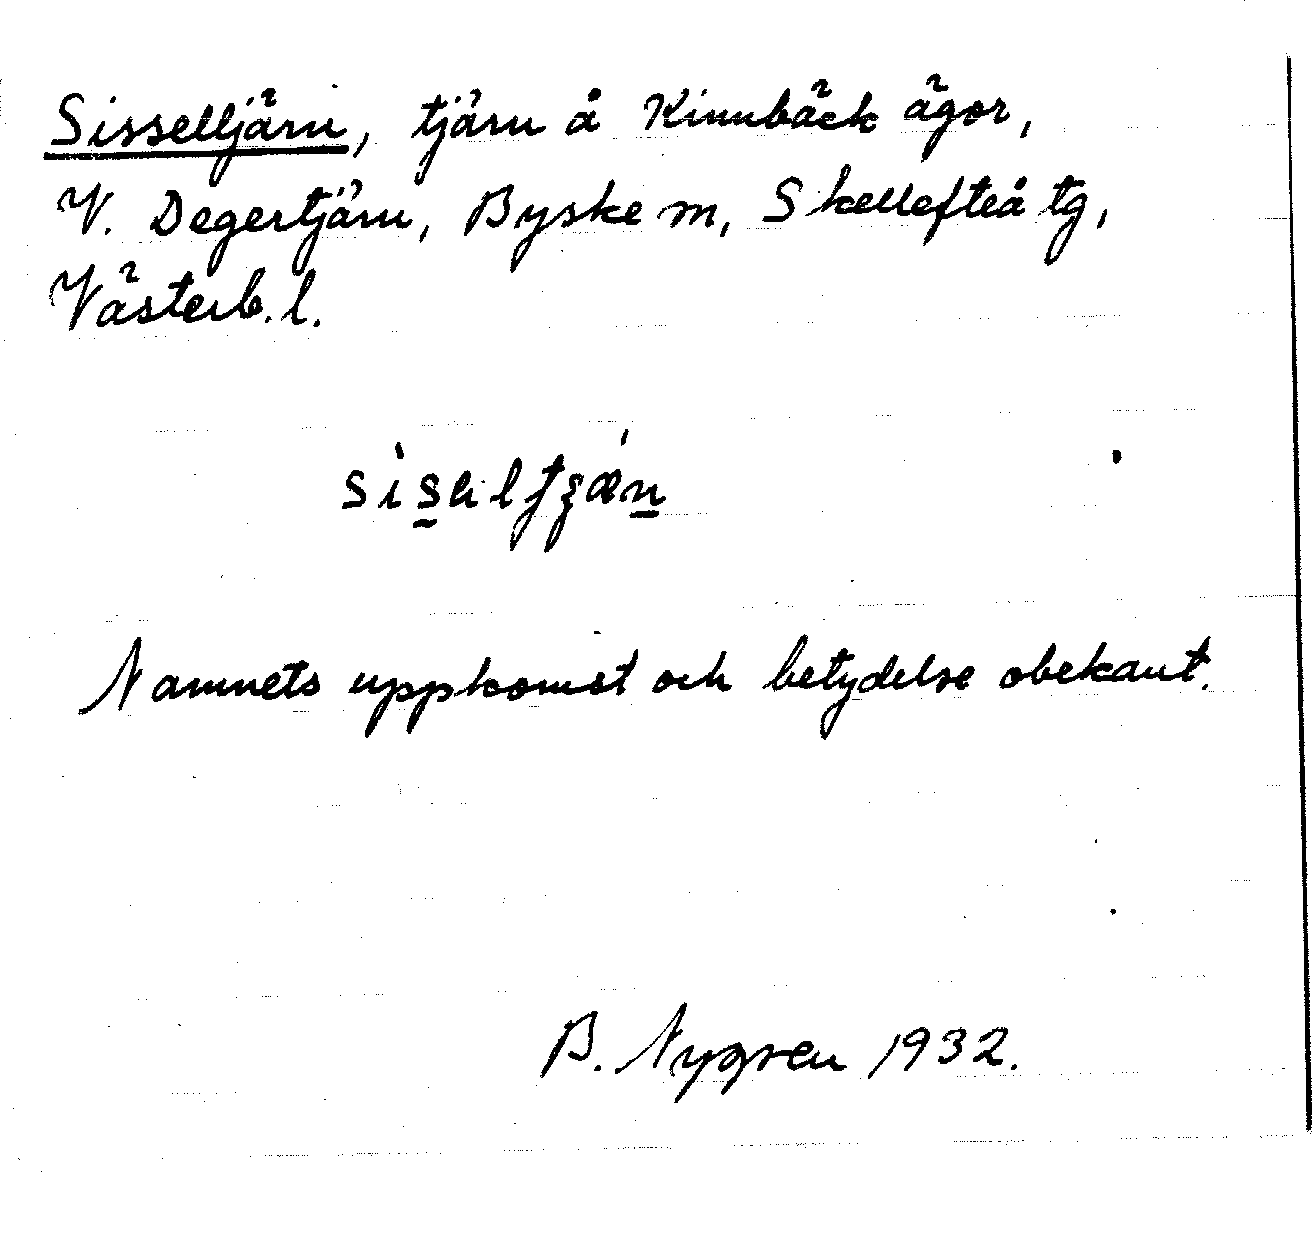 Sisseltjärn, tjärn å Kinnbäck ägor,
V. Degertjärn, Byske m, Skellefteå tg,
Västerb. l.
Namnets uppkomst och betydelse obekant.
B. Nygren 1932.